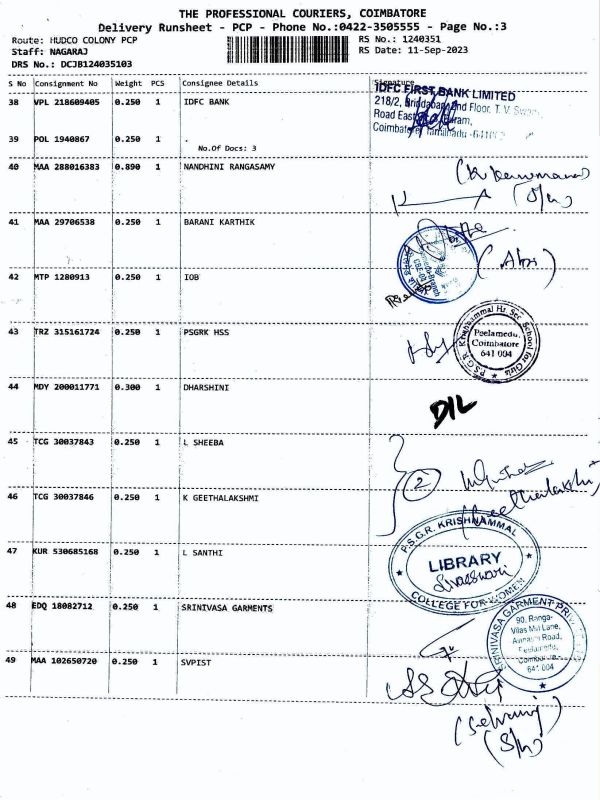 THE PROFESSIONAL COURIERS, COIMBATORE
Delivery Runsheet - PCP - Phone No.:0422-3505555 - Page No.:3
Route: HUDCO COLONY PCP
Staff: NAGARAJ
DRS No.: DCJB124035103
RS No.: 1240351
RS Date: 11-Sep-2023
S No Consignment No Weight PCS Consignee Details Signature
38 VPL 218609405 0.250 1 IDFC BANK
IDFC FIRST BANK LIMITED
39 POL 1940867 0.250 1 .
No.Of Docs: 3
40 MAA 288016383 0.890 1 NANDHINI RANGASAMY
41 MAA 29706538 0.250 1 BARANI KARTHIK
42 MTP 1280913 0.250 1 IOB
43 TRZ 315161724 0.250 1 PSGRK HSS
P.S.G.R. Krishnammal Hr. Sec. School for Girls
Peelamedu,
Coimbatore
641 004
44 MDY 200011771 0.300 1 DHARSHINI
D/L
45 TCG 30037843 0.250 1 L SHEEBA
2
46 TCG 30037846 0.250 1 K GEETHALAKSHMI
Geethalakshmi
47 KUR 530685168 0.250 1 L SANTHI
P.S.G.R. KRISHNAMMAL
LIBRARY
COLLEGE FOR WOMEN
48 EDQ 18082712 0.250 1 SRINIVASA GARMENTS
SRINIVASA GARMENT
90, Ranga-
Vilas Mill Lane,
Avinashi Road,
Peelamedu,
Coimbatore-
641 004
49 MAA 102650720 0.250 1 SVPIST